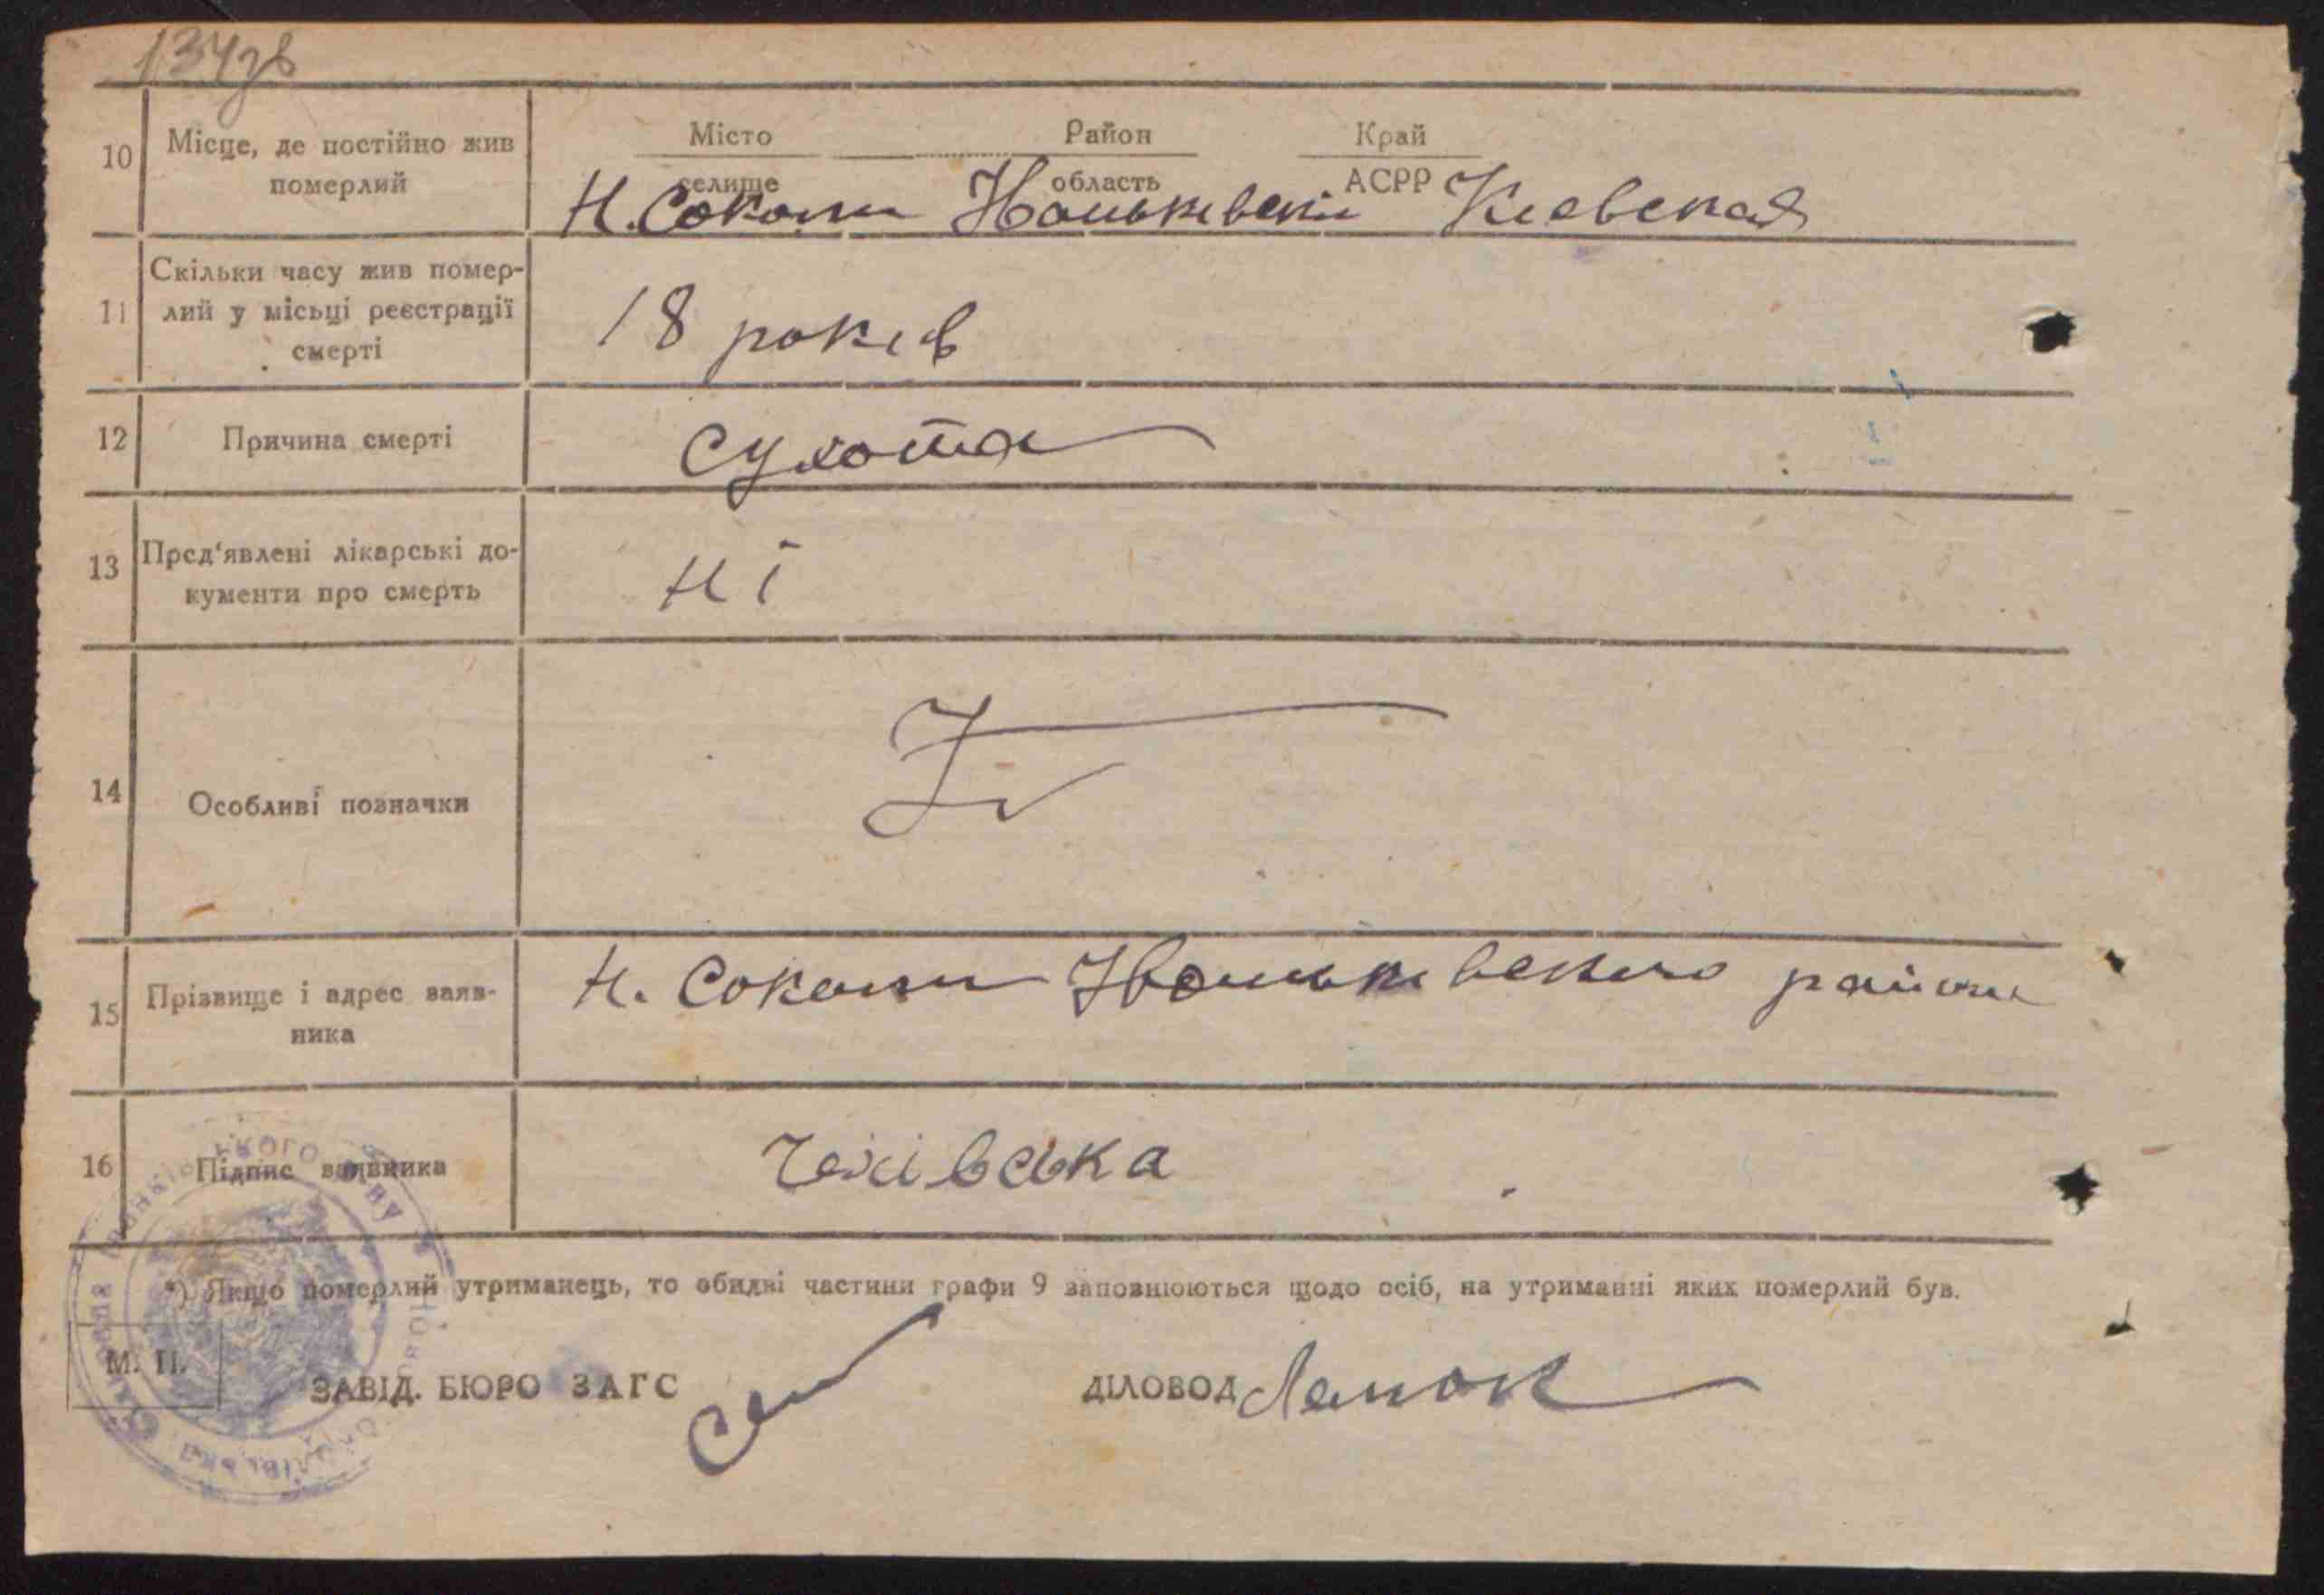 134зв
10 Місце, де постійно жив померлий
Місто Район Край
селище область АСРР
Н. Соколи Іваньківськи Киевская
11 Скільки часу жив помер-
лий у місьці реєстрації
смерті
18 років
12 Причина смерті
Сухота
13 Пред'явлені лікарські до-
кументи про смерть
ні
14 Особливі позначки
15 Прізвище і адрес заяв-
ника
Н. Соколи району
16 Підпис заявника
*) Якщо померлий утриманець, то обидві частини графи 9 заповнюються щодо осіб, на утриманні яких померлий був.
М. П.
ЗАВІД. БЮРО ЗАГС
ДІЛОВОД